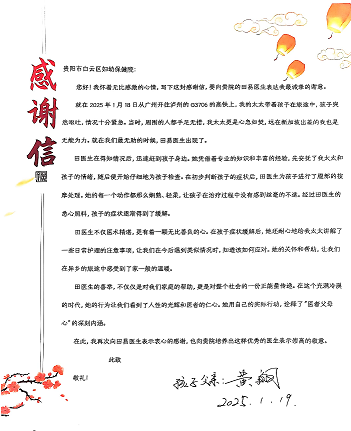 感谢信
贵阳市白云区妇幼保健院：
您好！我怀着无比感激的心情，写下这封感谢信，要向贵院的田易医生表达我最诚挚的谢意。
就在 2025 年 1 月 18 日从广州开往泸州的 G3706 的高铁上，我的太太带着孩子在旅途中，孩子突
然呕吐，情况十分紧急。当时，周围的人都手足无措，我太太更是心急如焚，远在新加坡出差的我也是
无能为力。就在我们最无助的时候，田易医生出现了。
田医生在得知情况后，迅速赶到孩子身边。她凭借着专业的知识和丰富的经验，先安抚了我太太和
孩子的情绪，随后便开始仔细地为孩子检查。在初步判断孩子的症状后，田医生为孩子进行了腹部的按
摩处理。她的每一个动作都那么娴熟、轻柔，让孩子在治疗过程中没有感到丝毫的不适。经过田医生的
悉心照料，孩子的症状逐渐得到了缓解。
田医生不仅医术精湛，更有着一颗无比善良的心。在孩子症状缓解后，她还耐心地给我太太讲解了
一些日常护理的注意事项，让我们在今后遇到类似情况时，知道该如何应对。她的关怀和帮助，让我们
在异乡的旅途中感受到了家一般的温暖。
田医生的善举，不仅仅是对我们家庭的帮助，更是对整个社会的一份正能量传递。在这个充满冷漠
的时代，她的行为让我们看到了人性的光辉和医者的仁心。她用自己的实际行动，诠释了“医者父母
心”的深刻内涵。
在此，我再次向田易医生表示衷心的感谢，也向贵院培养出这样优秀的医生表示崇高的敬意。
此致
敬礼！
孩子父亲：黄
2025.1.19.